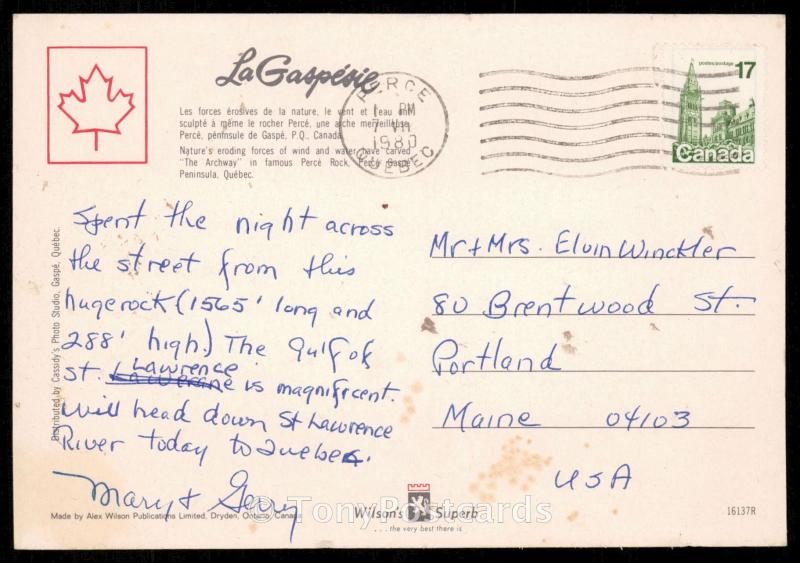 La Gaspésie
Les forces érosives de la nature, le vent et l'eau ont
sculpté à même le rocher Percé, une arche merveilleuse.
Percé, péninsule de Gaspé, P.Q., Canada.
Nature's eroding forces of wind and water have carved
"The Archway" in famous Percé Rock, Percé Gaspé
Peninsula, Québec.
PERCE
1 PM
7 VII
1980
QUEBEC
postes/postage
17
Canada
Spent the night across
the street from this
huge rock (1565' long and
288' high.) The Gulf of
St. Lawrence is magnificent.
Will head down St Lawrence
River today to Quebec.
Mary & Gerry
Mr + Mrs. Elvin Winckler
80 Brentwood St.
Portland
Maine 04103
USA
Distributed by Cassidy's Photo Studio, Gaspé, Québec.
Made by Alex Wilson Publications Limited, Dryden, Ontario, Canada
© TonyPostcards
Wilson's Superb
... the very best there is
16137R